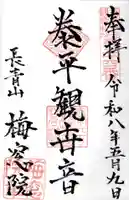 奉拝
令和八年五月九日
泰平觀世音
長青山
梅窓院